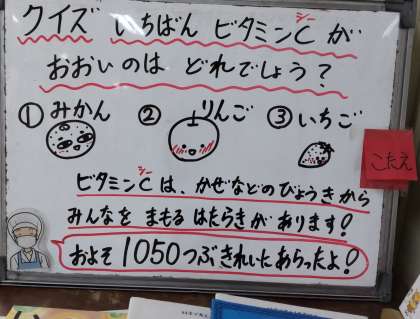 クイズ いちばん ビタミンC(シー)が
おおいのは どれでしょう?
①みかん ②りんご ③いちご
こたえ
ビタミンC(シー)は、かぜなどのびょうきから
みんなを まもる はたらきが あります!
およそ1050つぶきれいにあらったよ!